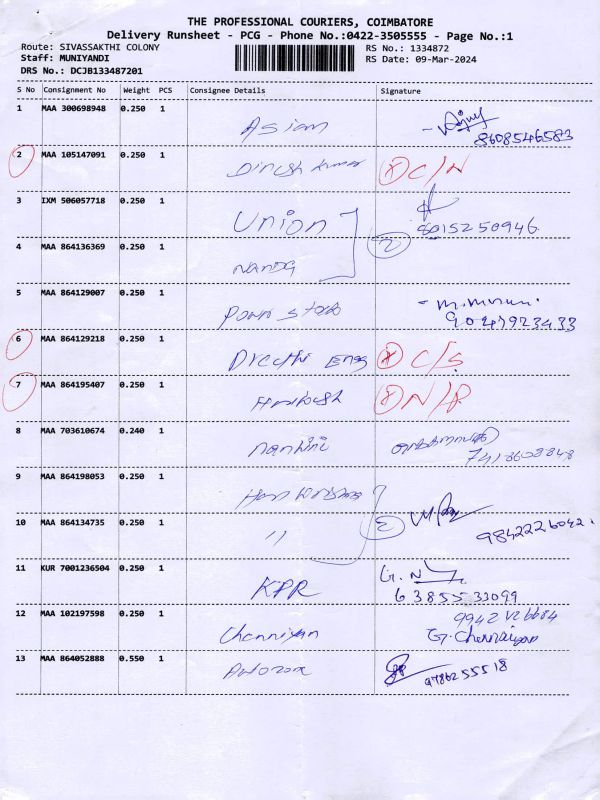 THE PROFESSIONAL COURIERS, COIMBATORE
Delivery Runsheet - PCG - Phone No.:0422-3505555 - Page No.:1
Route: SIVASSAKTHI COLONY RS No.: 1334872
Staff: MUNIYANDI RS Date: 09-Mar-2024
DRS No.: DCJB133487201
S No Consignment No Weight PCS Consignee Details Signature
1 MAA 300698948 0.250 1
Asian
8608546583
2 MAA 105147091 0.250 1
Dinesh kumar C/N
3 IXM 506057718 0.250 1
Union
8015250946
4 MAA 864136369 0.250 1
2
Nanda
5 MAA 864129007 0.250 1
9047923433
6 MAA 864129218 0.250 1
Engg C/S
7 MAA 864195407 0.250 1
N/P
8 MAA 703610674 0.240 1
Nandhini
9 MAA 864198053 0.250 1
10 MAA 864134735 0.250 1
3
9842226042.
11 KUR 7001236504 0.250 1
KPR G. N
6385533099
12 MAA 102197598 0.250 1
Chenniyan G. Chenniyan
13 MAA 864052888 0.550 1
9786255518